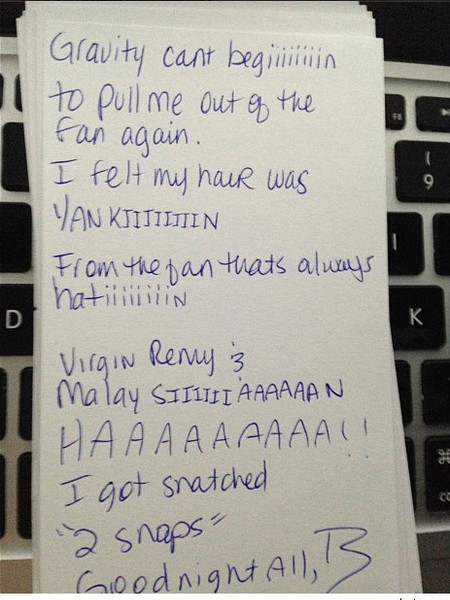 Gravity cant begiiiiiiiin
to pull me out of the
fan again.
I felt my haiR was
YANKIIIIIIIIN
From the fan thats always
hatiiiiiiiiN
Virgin Remy is
Malay SIIIIIIAAAAAAN
HAAAAAAAAA!!
I got snatched
"2 snaps"
Goodnight All, B
F8
(
9
I
D
K
⌘